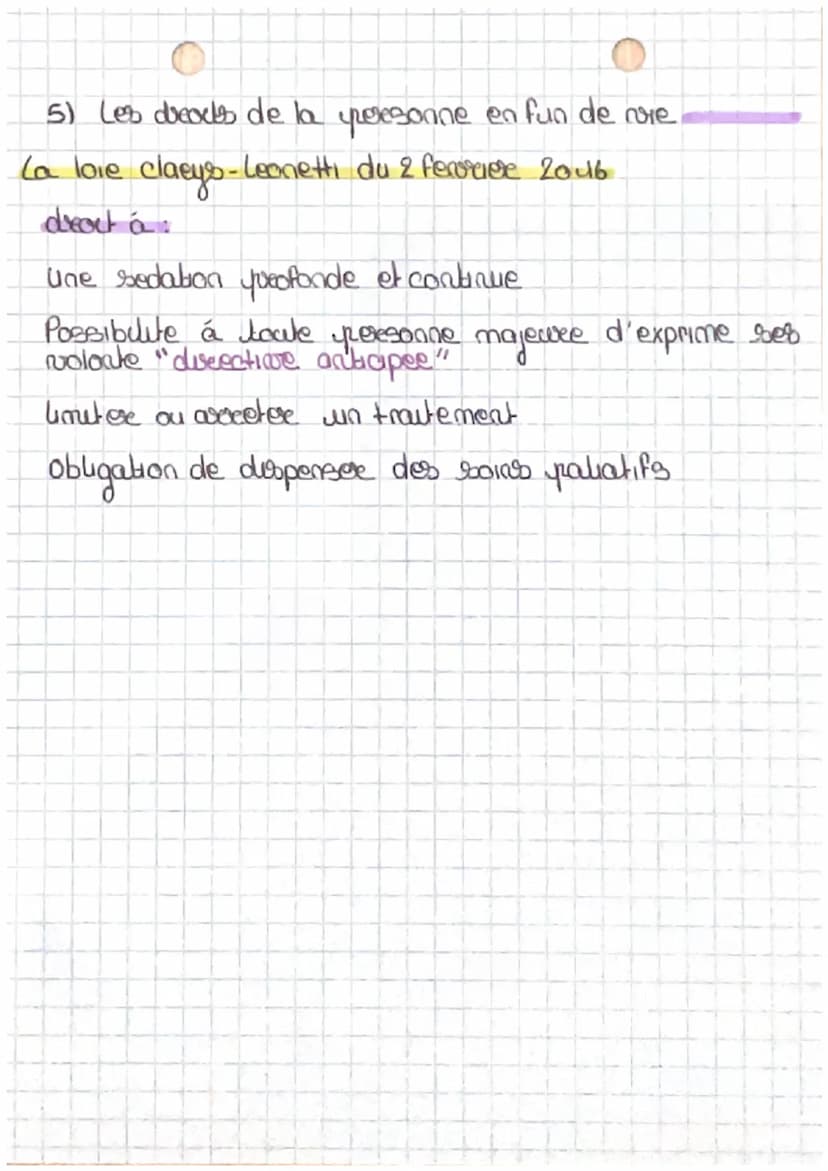 5) Les droits de la personne en fin de vie
La loie claeys-Leonetti du 2 fevrier 2016
droit à :
Une sedation profonde et continue
Possibilite à toute personne majeure d'exprime ses
volonte "directive anticipee"
limiter ou arreter un traitement
Obligation de dispenser des soins paliatifs